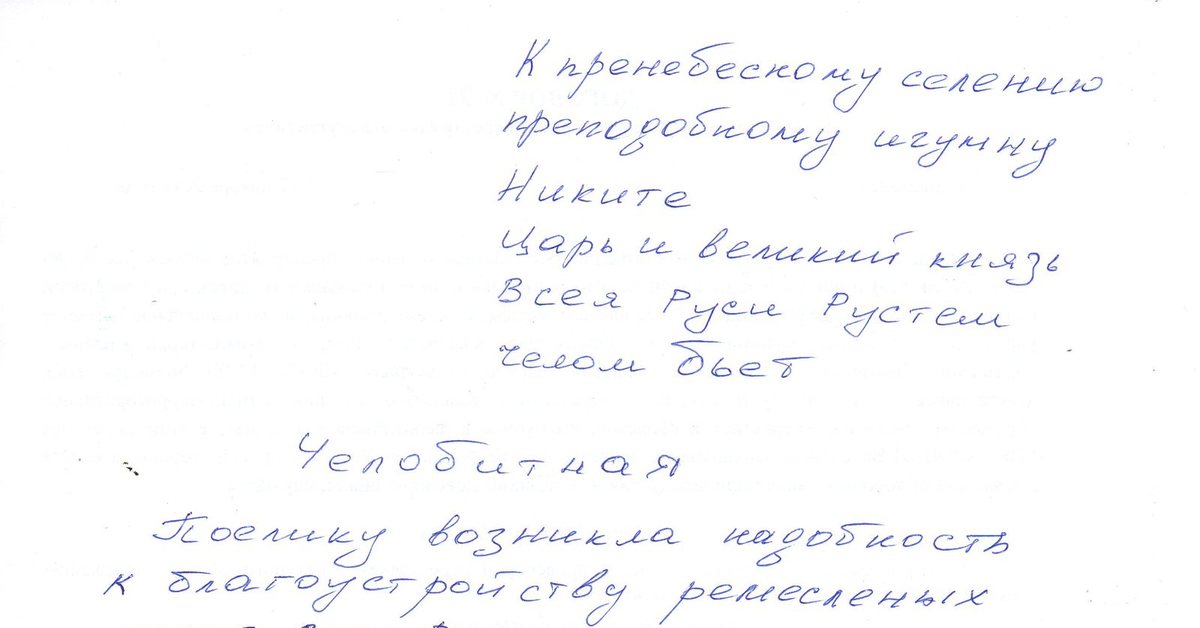 К пренебескому селению
преподобному игумну
Никите
Царь и великий князь
Всея Руси Рустем
челом бьет
Челобитная
Поелику возникла надобность
к благоустройству ремесленых